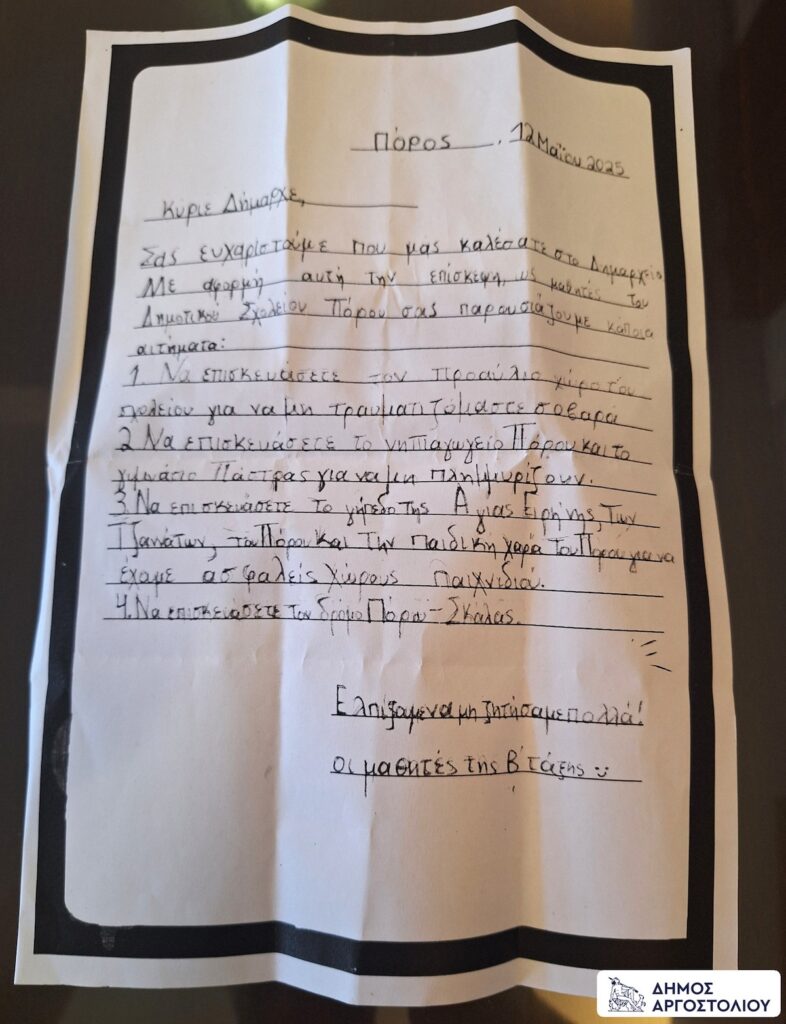 Πόρος, 12 Μαΐου 2025
Κύριε Δήμαρχε,
Σας ευχαριστούμε που μας καλέσατε στο Δημαρχείο
Με αφορμή αυτή την επίσκεψη, ως μαθητές του
Δημοτικού Σχολείου Πόρου σας παρουσιάζουμε κάποια
αιτήματα:
1. Να επισκευάσετε τον προαύλιο χώρο του
σχολείου για να μη τραυματιζόμαστε σοβαρά
2. Να επισκευάσετε το νηπιαγωγείο Πόρου και το
γυμνάσιο Πάστρας για να μη πλημμυρίζουν.
3. Να επισκευάσετε το γήπεδο της Αγίας Ειρήνης, των
Τζανάτων, του Πόρου και την παιδική χαρά του Πόρου για να
έχομε ασφαλείς χώρους παιχνιδιού.
4. Να επισκευάσετε τον δρόμο Πόρου - Σκάλας.
Ελπίζομε να μη ζητήσαμε πολλά!
οι μαθητές της Β' τάξης
ΔΗΜΟΣ
ΑΡΓΟΣΤΟΛΙΟΥ